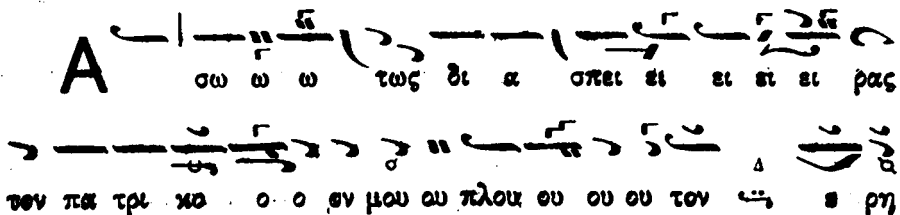 Α σω ω ω τως δι α σπει ει ει ει ει ρας
τον πα τρι κο ο ο ον μου ου πλου ου ου ου τον ε ρη